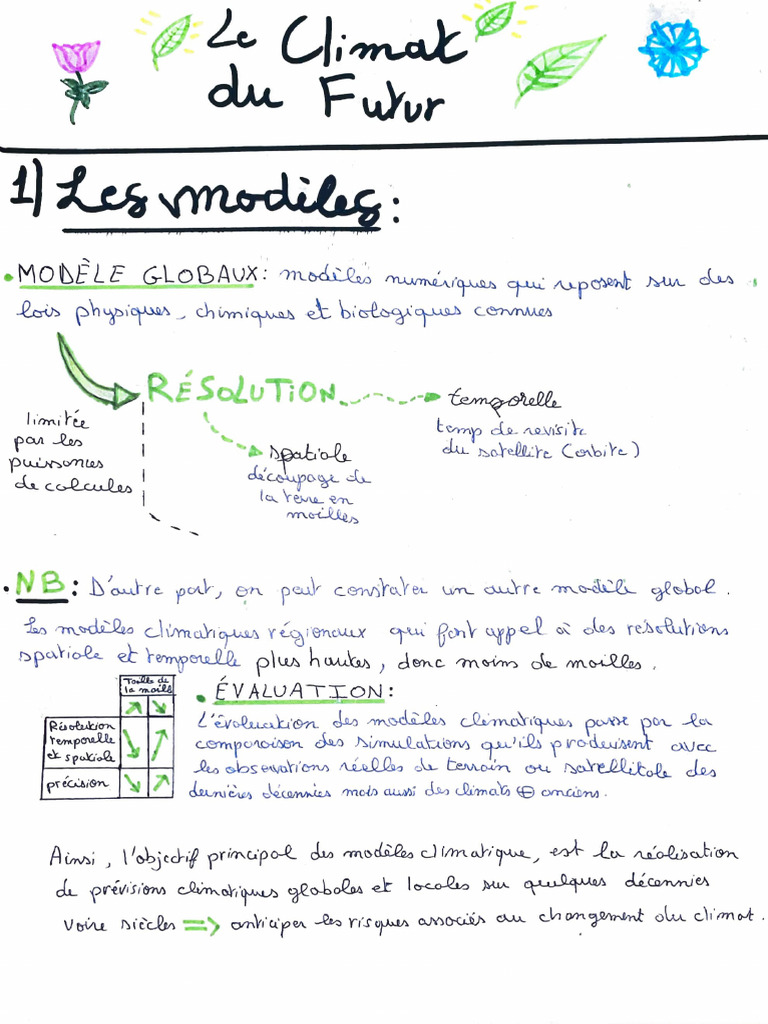 Le Climat
du Futur
1) Les modèles :
• MODÈLE GLOBAUX : modèles numériques qui reposent sur des
lois physiques, chimiques et biologiques connues
RÉSOLUTION
temporelle
temp de revisite
du satellite (orbite)
limitée
par les
puissances
de calcules
spatiale
découpage de
la terre en
mailles
• NB : D'autre part, on peut constater un autre modèle global.
Les modèles climatiques régionaux qui font appel à des résolutions
spatiale et temporelle plus hautes, donc moins de mailles.
Taille de
la maille
↗ ↘
Résolution
temporelle
et spatiale
↘ ↗
précision
↘ ↗
• ÉVALUATION :
L'évaluation des modèles climatiques passe par la
comparaison des simulations qu'ils produisent avec
les observations réelles de terrain ou satellitale des
dernières décennies mais aussi des climats ⊕ anciens.
Ainsi, l'objectif principal des modèles climatique, est la réalisation
de prévisions climatiques globales et locales sur quelques décennies
voire siècles => anticiper les risques associés au changement du climat.